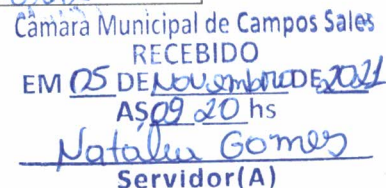 Câmara Municipal de Campos Sales
RECEBIDO
EM 05 DE Novembro DE 2021
AS 09 20 hs
Natalia Gomes
Servidor(A)